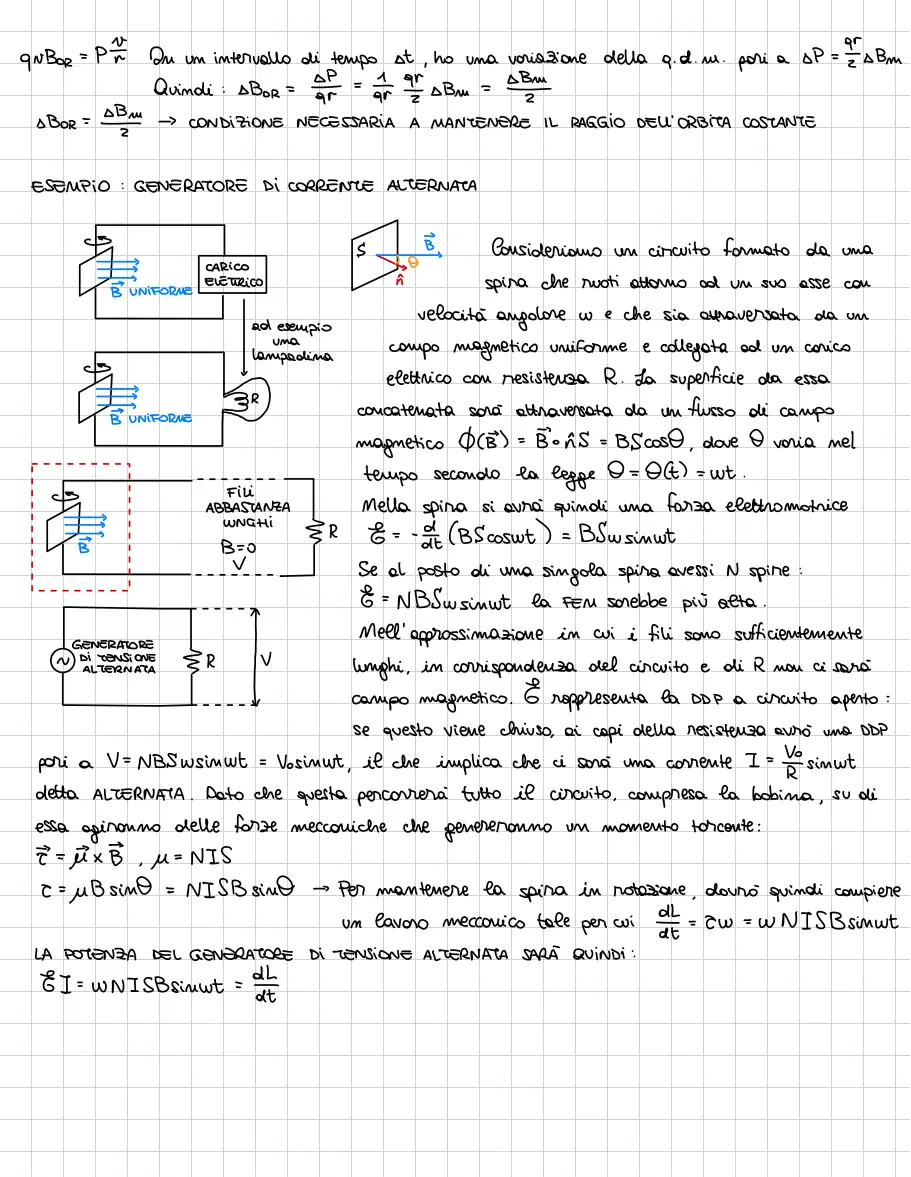 qvB_OR = P v/r In un intervallo di tempo Δt, ho una variazione della q.d.m. pari a ΔP = qr/2 ΔBm
Quindi : ΔB_OR = ΔP/qr = 1/qr qr/2 ΔBm = ΔBm/2
ΔB_OR = ΔBm/2 → CONDIZIONE NECESSARIA A MANTENERE IL RAGGIO DELL'ORBITA COSTANTE
ESEMPIO : GENERATORE DI CORRENTE ALTERNATA
B⃗ UNIFORME
CARICO
ELETTRICO
ad esempio
una
lampadina
B⃗ UNIFORME
R
B⃗
FILI
ABBASTANZA
LUNGHI
B=0
V
R
GENERATORE
DI TENSIONE
ALTERNATA
~
R
V
S
B⃗
θ
n̂
Consideriamo un circuito formato da una
spira che ruoti attorno ad un suo asse con
velocità angolare ω e che sia attraversata da un
campo magnetico uniforme e collegata ad un carico
elettrico con resistenza R. La superficie da essa
concatenata sarà attraversata da un flusso di campo
magnetico Φ(B⃗) = B⃗∘n̂S = BScosθ, dove θ varia nel
tempo secondo la legge θ = θ(t) = ωt.
Nella spira si avrà quindi una forza elettromotrice
ℰ = -d/dt (BScosωt) = BSωsinωt
Se al posto di una singola spira avessi N spire :
ℰ = NBSωsinωt la FEM sarebbe più alta.
Nell'approssimazione in cui i fili sono sufficientemente
lunghi, in corrispondenza del circuito e di R non ci sarà
campo magnetico. ℰ rappresenta la DDP a circuito aperto :
se questo viene chiuso, ai capi della resistenza avrò una DDP
pari a V = NBSωsinωt = V₀sinωt, il che implica che ci sarà una corrente I = V₀/R sinωt
detta ALTERNATA. Dato che questa percorrerà tutto il circuito, compresa la bobina, su di
essa agiranno delle forze meccaniche che genereranno un momento torcente:
τ⃗ = μ⃗ × B⃗ , μ = NIS
τ = μBsinθ = NISBsinθ → Per mantenere la spira in rotazione, dovrò quindi compiere
un lavoro meccanico tale per cui dL/dt = τω = ωNISBsinωt
LA POTENZA DEL GENERATORE DI TENSIONE ALTERNATA SARÀ QUINDI :
ℰI = ωNISBsinωt = dL/dt